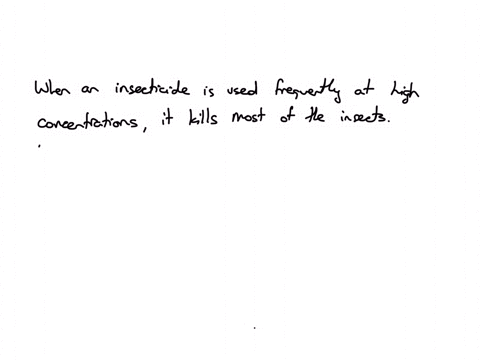 When an insecticide is used frequently at high
concentrations, it kills most of the insects.